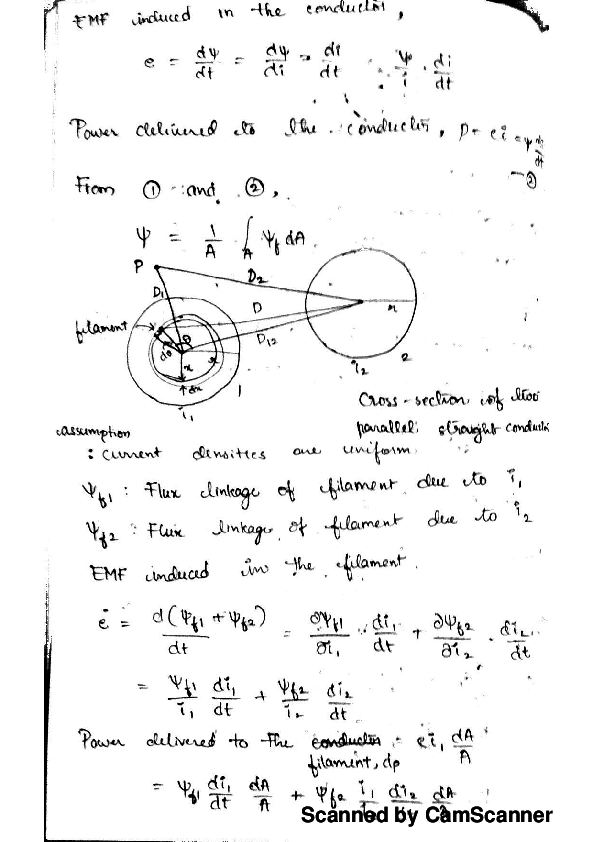 EMF induced in the conductor,
e = dψ/dt = dψ/di · di/dt ψ/i · di/dt
Power delivered to the conductor, P = ei = ψ di/dt
—②
From ① and ②,
ψ = 1/A ∫_A ψ_f dA
P
D₂
D₁
D
r
filament
θ
D₁₂
dθ
x
r
2
dx
1
i₂
i₁
Cross-section of two
parallel straight
assumption
: current densities are uniform.
ψ_f1 : Flux linkage of filament due to i₁
ψ_f2 : Flux linkage of filament due to i₂
EMF induced in the filament.
e = d(ψ_f1 + ψ_f2)/dt = ∂ψ_f1/∂i₁ · di₁/dt + ∂ψ_f2/∂i₂ · di₂/dt
= ψ_f1/i₁ di₁/dt + ψ_f2/i₂ di₂/dt
Power delivered to the conductor = ei₁ dA/A
filament, dp
= ψ_f1 di₁/dt dA/A + ψ_f2 i₁/i₂ di₂/dt dA/A
Scanned by CamScanner